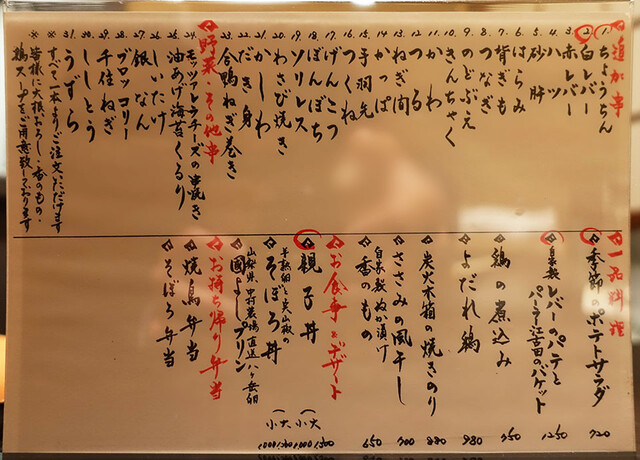 追加串
1. ちょうちん
2. 白レバー
3. 赤レバー
4. ハツ
5. 砂肝
6. はらみ
7. 背ぎも
8. つなぎ
9. のどぶえ
10. きんちゃく
11. かわ
12. つくね
13. ねぎ間
14. かっぱ
15. 手羽先
16. つくね
17. げんこつ
18. ぼんぼち
19. ソリレス
20. わさび焼き
21. かしわ
22. だき身
23. 合鴨ねぎ巻き
野菜、その他串
24. モッツアレラチーズの串焼き
25. 油あげ海苔くるり
26. しいたけ
27. 銀なん
28. ブロッコリー
29. 千住ねぎ
30. ししとう
31. うずら
※ すべて一本よりご注文いただけます
※ 皆様に大根おろし・香のもの・
鶏スープをご用意致しております
一品料理
季節のポテトサラダ 720
自家製レバーのパテと
パーラー江古田のバゲット 1250
鶏の煮込み 750
よだれ鶏 980
炭火木箱の焼きのり 880
ささみの風干し 700
自家製ぬか漬け
香のもの 650
お食事とデザート
親子丼 (大 1500 小 1000
半熟卵と炭山椒の
そぼろ丼 (大 小 1000
山梨県、中村農場直送八ヶ岳卵
国よしプリン
お持ち帰り弁当
焼鳥弁当
そぼろ弁当